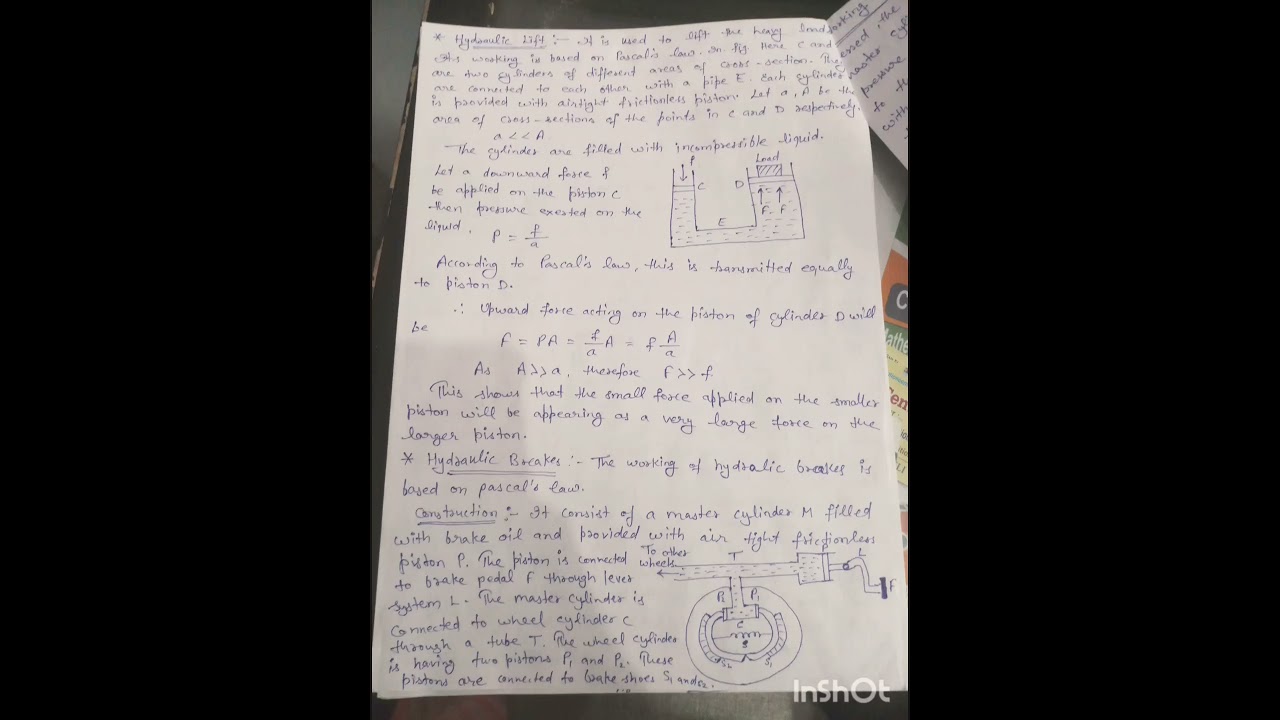 * Hydraulic Lift :- It is used to lift the heavy load
Its working is based on Pascal's law. In fig Here C and
are two cylinders of different areas of cross-section. The
are connected to each other with a pipe E. Each cylinder
is provided with airtight frictionless piston. Let a, A be the
area of cross-sections of the points in C and D respectively.
a << A.
The cylinder are filled with incompressible liquid.
Let a downward force f
be applied on the piston C
then pressure exerted on the
liquid,
P = f/a
f
Load
C
D
F F
E
According to Pascal's law, this is transmitted equally
to piston D.
∴ Upward force acting on the piston of cylinder D will
be
F = PA = f/a A = f A/a
As A>>a, therefore F>>f.
This shows that the small force applied on the smaller
piston will be appearing as a very large force on the
larger piston.
* Hydraulic Breakes :- The working of hydralic breakes is
based on pascal's law.
Construction :- It consist of a master cylinder M filled
with brake oil and provided with air tight frictionless
piston P. The piston is connected
to brake pedal F through lever
system L. The master cylinder is
connected to wheel cylinder C
through a tube T. The wheel cylinder
is having two pistons P1 and P2. These
pistons are connected to brake shoes S1 and S2.
To other
wheels
T
P
L
F
P2
P1
C
S
S2
S1
essed, the
master cyl
pressure
to th
with
C
Mathe
InShOt